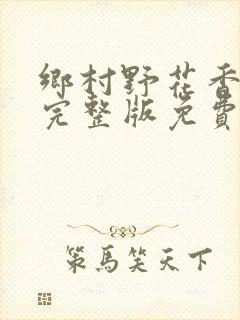 鄉村野花香
完整版免費
策馬笑天下